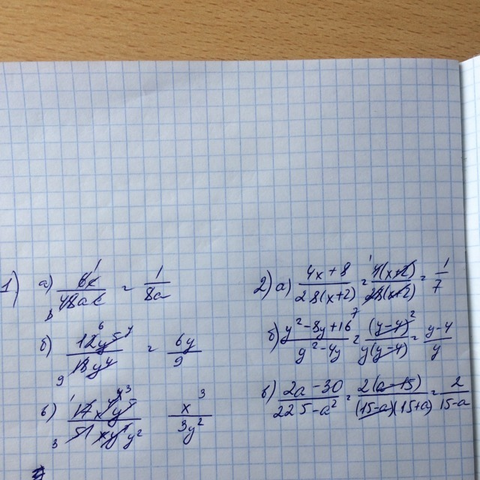 1) а) 6с/48ас = 1/8а
б) 12y⁵/18y⁴ = 6y/9
в) 17x⁴y⁵/51xy⁷ x³/3y²
2) а) 4x+8/28(x+2) = 4(x+2)/28(x+2) = 1/7
б) y²-8y+16/y²-4y = (y-4)²/y(y-4) = y-4/y
в) 2a-30/225-a² = 2(a-15)/(15-a)(15+a) = 2/15-a